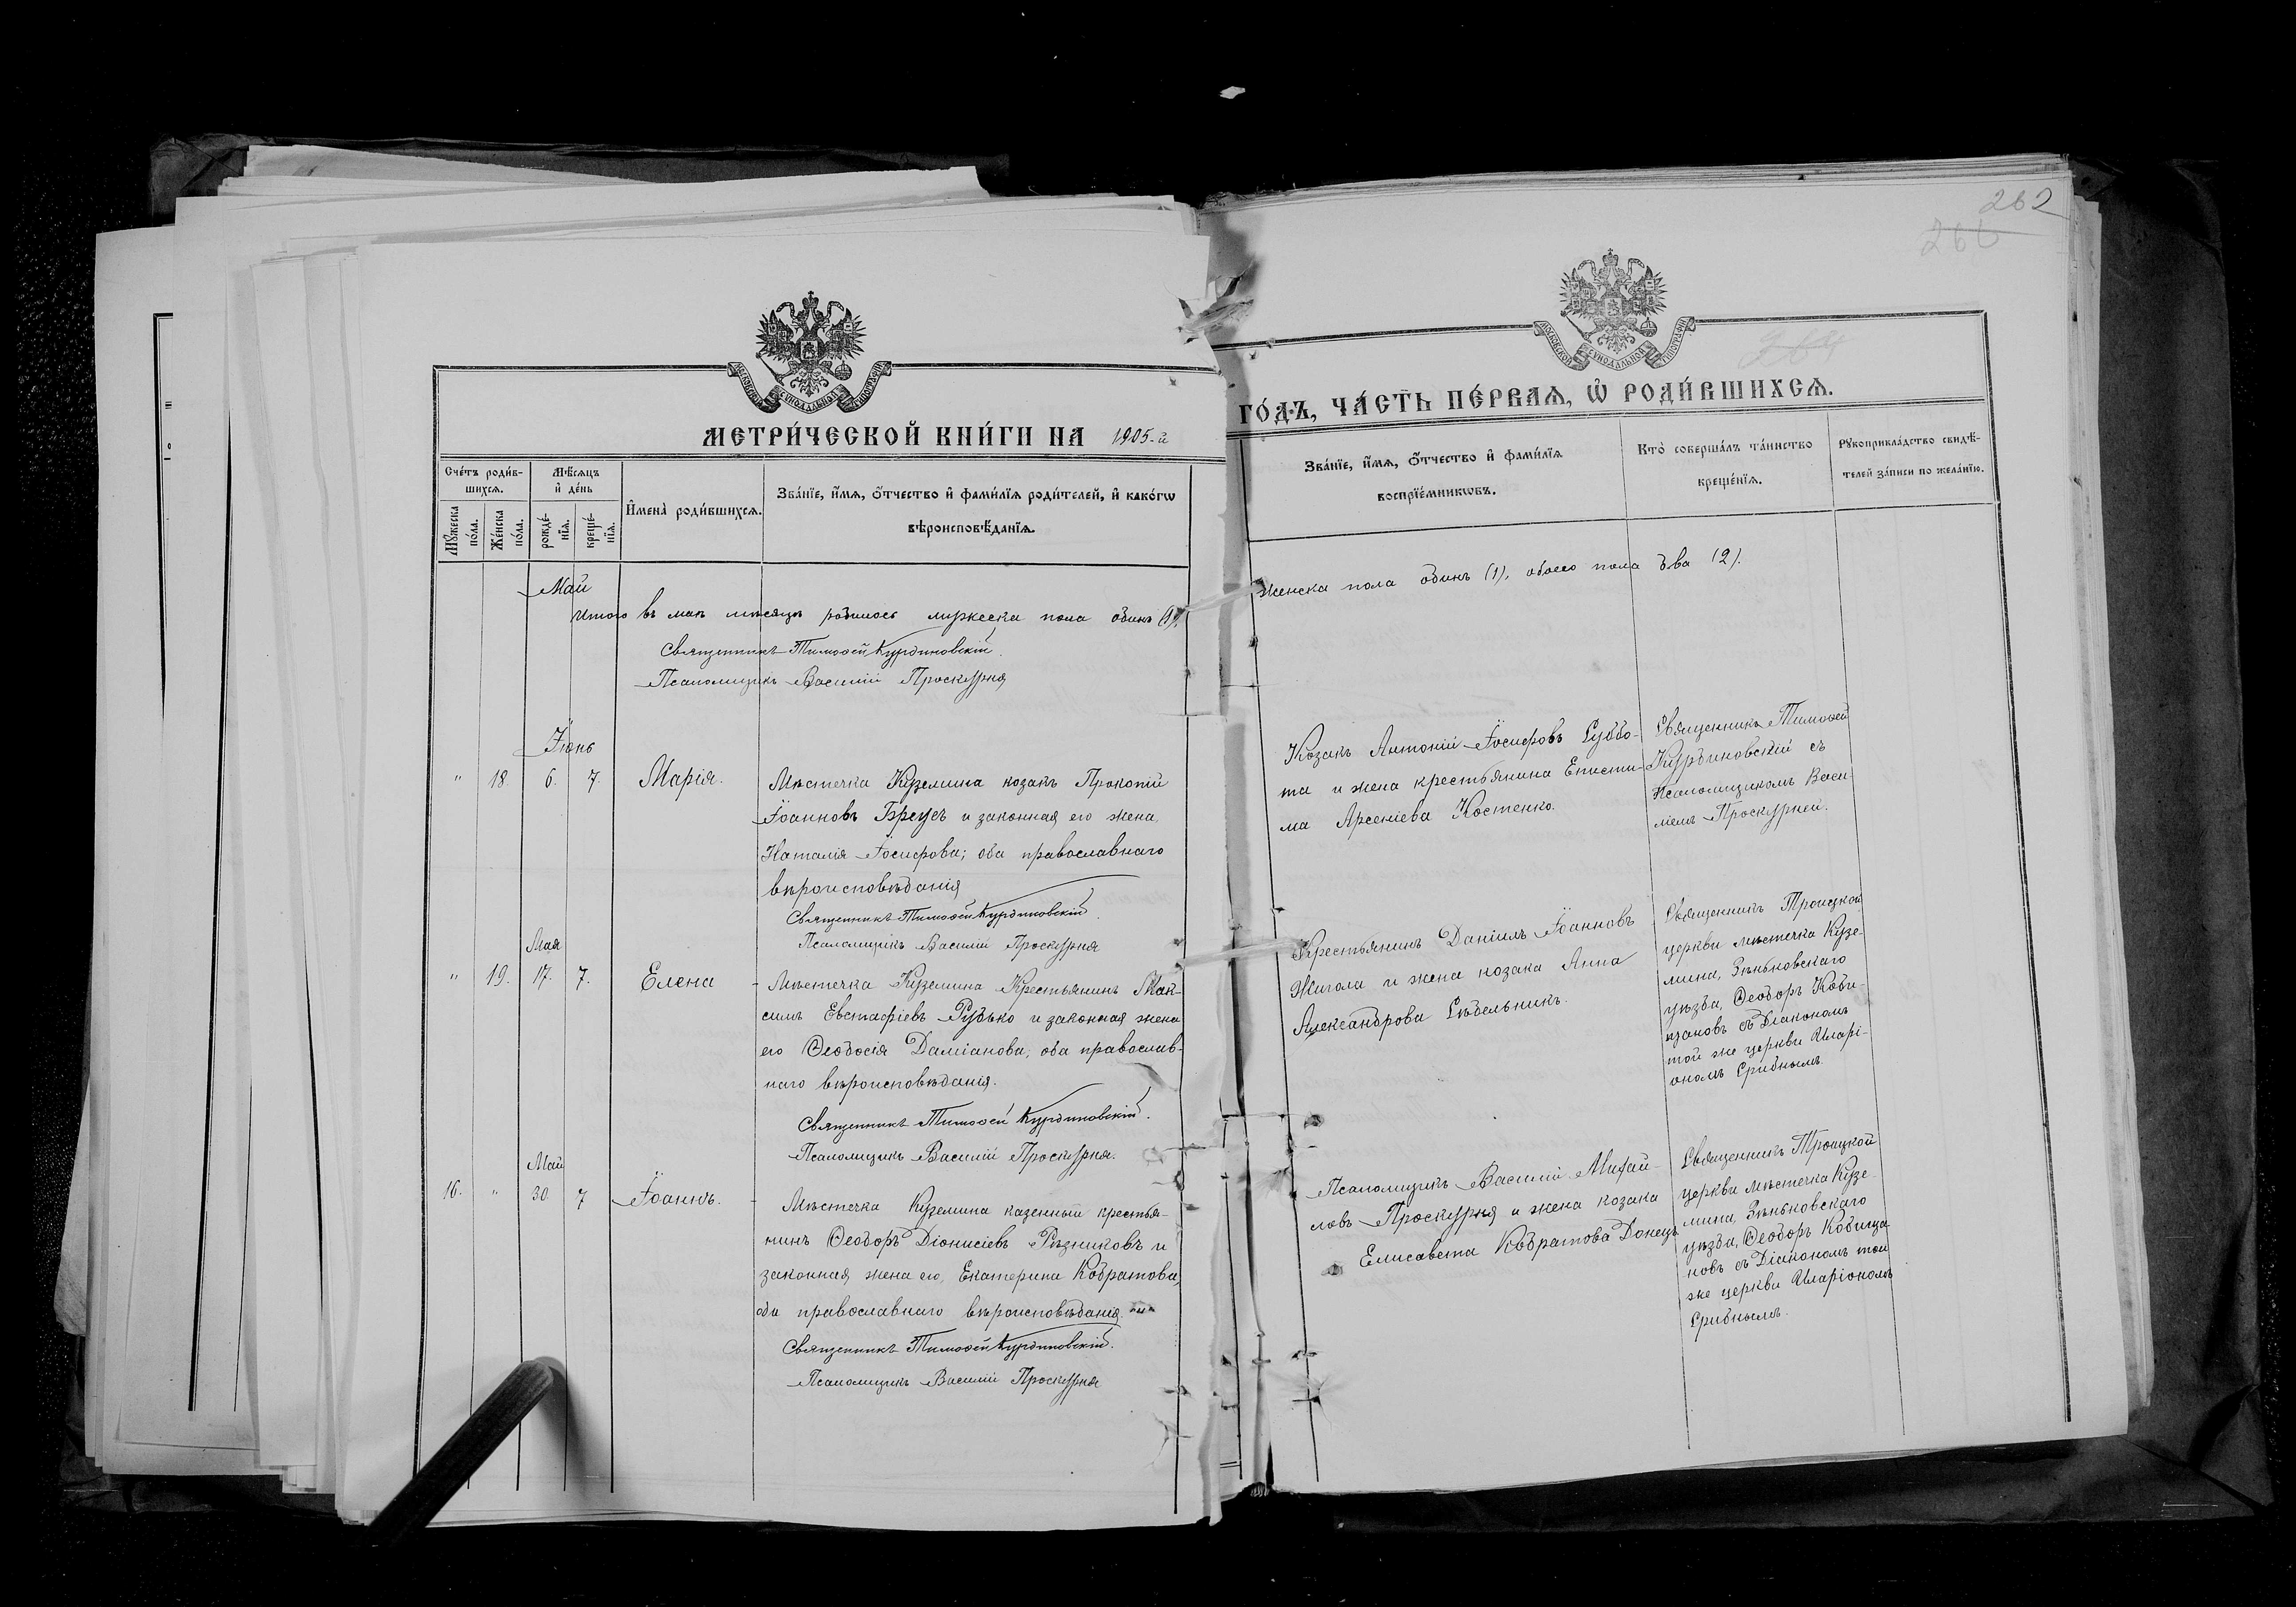 262
266
264
МОСКОВСКОЙ СѴНОДАЛЬНОЙ ТИПОГРАФІИ
МОСКОВСКОЙ СѴНОДАЛЬНОЙ ТИПОГРАФІИ
МЕТРИ́ЧЕСКОЙ КНИ́ГИ НА 1905-й
ГО́ДЪ, ЧА́СТЬ ПЕ́РВАѦ, Ѡ҆ РОДИ́ВШИХСѦ.
Сче́тъ роди́в-
шихсѧ.
Мꙋ́жеска
по́ла.
Же́нска
по́ла.
Мѣ́сѧцъ
и҆ де́нь
рожде́-
нїѧ.
креще́-
нїѧ.
И҆мена̀ роди́вшихсѧ.
Зва́нїе, и҆́мѧ, ѻ҆́тчество и҆ фами́лїѧ роди́телей, и҆ како́гѡ
вѣроисповѣ́данїѧ.
Зва́нїе, и҆́мѧ, ѻ҆́тчество и҆ фами́лїѧ
воспрїе́мникѡвъ.
Кто̀ соверша́лъ та́инство
креще́нїѧ.
Рꙋкоприкла́дство свидѣ́-
телей за́писи по жела́нїю.
Май
Итого въ маѣ мѣсяцѣ родилось мужеска пола одинъ (1),
женска пола одинъ (1), обоего пола два (2).
Священникъ Тимоѳей Курдиновскій.
Псаломщикъ Василій Проскурня
Іюнь
" 18. 6. 7. Марія.
Мѣстечка Куземина козакъ Прокопій
Іоанновъ Бреусъ и законная его жена
Наталія Іосифова; оба православнаго
вѣроисповѣданія
Священникъ Тимоѳей Курдиновскій.
Псаломщикъ Василій Проскурня
Козакъ Антоній Іосифовъ Суббо-
та и жена крестьянина Еписти-
ма Арсеніева Костенко.
Священникъ Тимоѳей
Курдиновскій съ
Псаломщикомъ Васи-
ліемъ Проскурней.
Мая
" 19. 17. 7. Елена
Мѣстечка Куземина Крестьянинъ Мак-
симъ Евстафіевъ Рудько и законная жена
его Ѳеодосія Даміанова, оба православ-
наго вѣроисповѣданія.
Священникъ Тимоѳей Курдиновскій.
Псаломщикъ Василій Проскурня.
Крестьянинъ Даніилъ Іоанновъ
Жигола и жена козака Анна
Александрова Сѣдельникъ.
Священникъ Троицкой
церкви мѣстечка Кузе-
мина, Зѣньковскаго
уѣзда, Ѳеодоръ Коби-
щановъ съ Діакономъ
той же церкви Иларі-
ономъ Грибнымъ.
Май
16. " 30. 7 Іоаннъ.
Мѣстечка Куземина казенный крестья-
нинъ Ѳеодоръ Діонисіевъ Рѣзниковъ и
законная жена его, Екатерина Кодратова,
оба православнаго вѣроисповѣданія.
Священникъ Тимоѳей Курдиновскій.
Псаломщикъ Василій Проскурня
Псаломщикъ Василій Михай-
ловъ Проскурня и жена козака
Елисавета Кодратова Донецъ
Священникъ Троицкой
церкви мѣстечка Кузе-
мина, Зѣньковскаго
уѣзда, Ѳеодоръ Кобища-
новъ съ Діакономъ той
же церкви Иларіономъ
Грибнымъ.